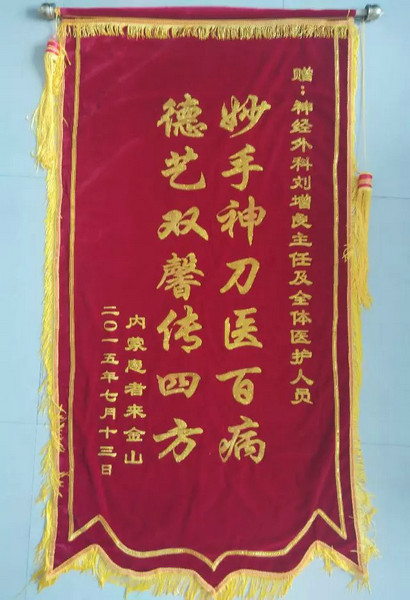 赠：神经外科刘增良主任及全体医护人员
妙手神刀医百病
德艺双馨传四方
内蒙患者来金山
二〇一五年七月十三日